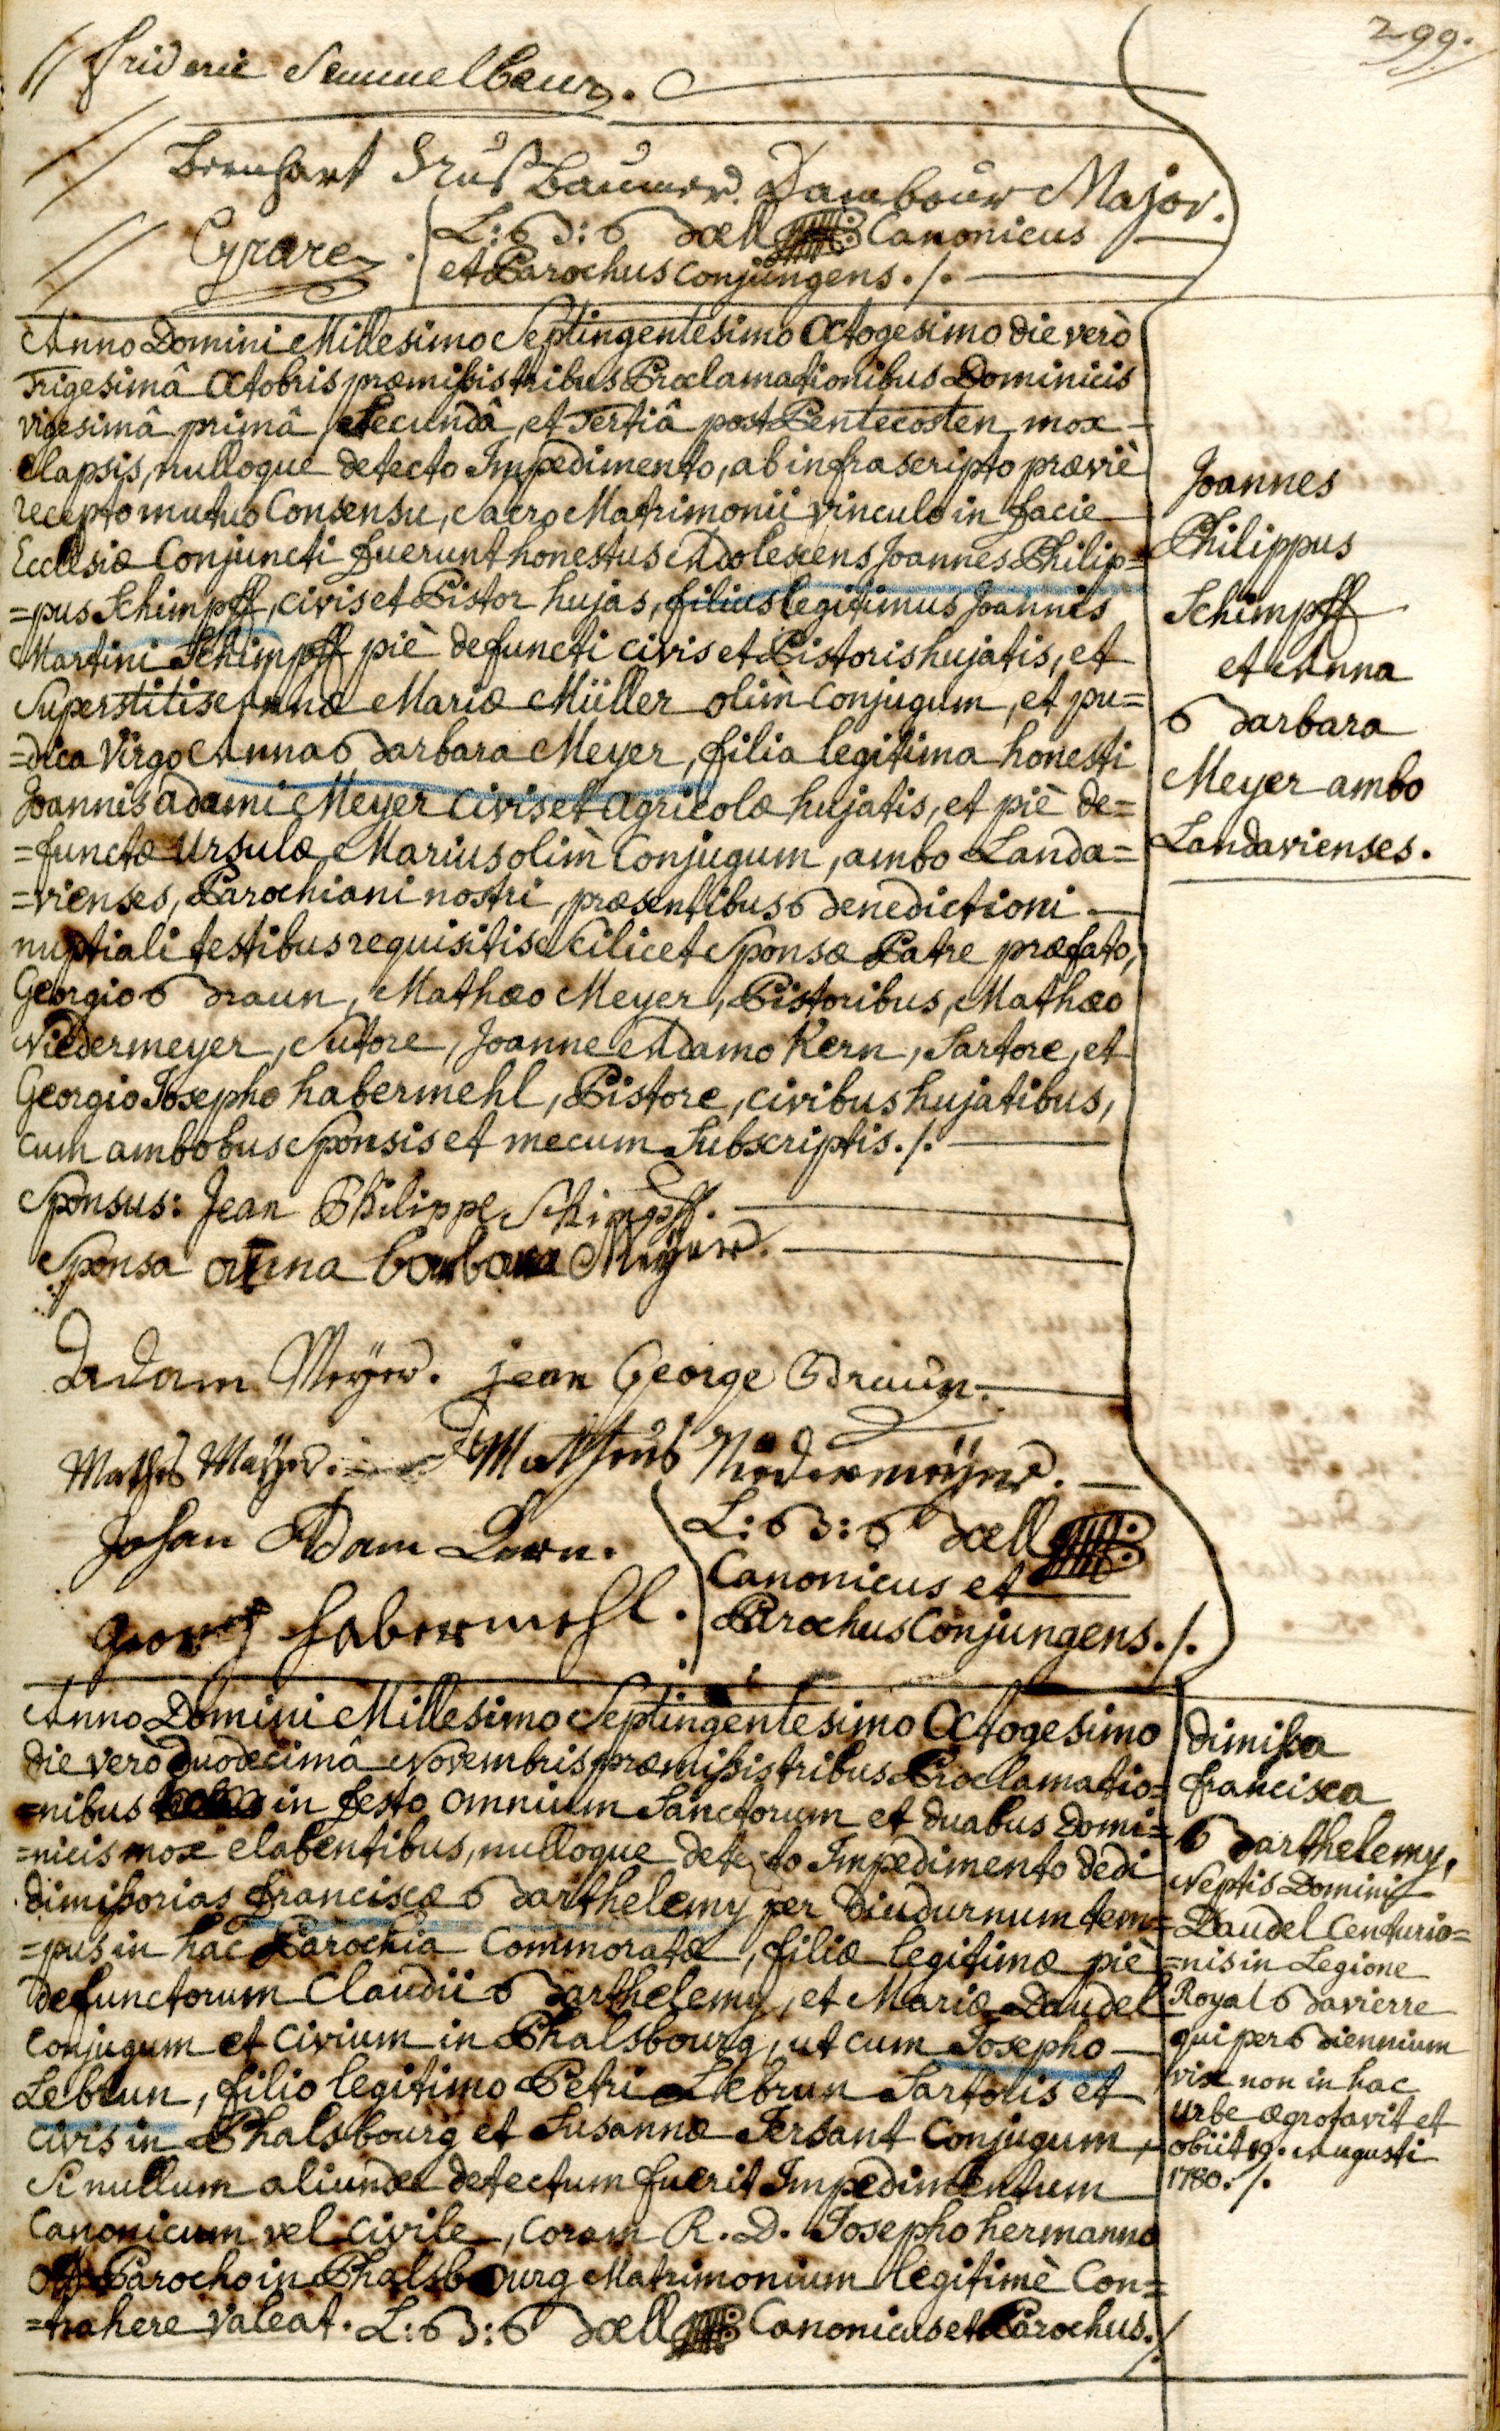 299.
// frideric Semmelbaur.
// Bernhart Nusbaumer. Dambour Major.
// Cyrare. L: B: Boell Canonicus
et Parochus conjungens ./.
Anno Domini Millesimo Septingentesimo Octogesimo die verò
Trigesimâ Octobris præmissis tribus Proclamationibus Dominicis
vigesimâ primâ, Secundâ, et Tertiâ post Pentecosten mox
elapsis, nulloque detecto Impedimento, ab infrascripto præviè
recepto mutuo Consensu, Sacro Matrimonii vinculo in facie
Ecclesiæ Conjuncti fuerunt honestus Adolescens Joannes Philip=
=pus Schimpff, civis et Pistor hujas, filius legitimus Joannis
Martini Schimpff piè defuncti civis et Pistoris hujatis, et
Superstitis Annæ Mariæ Müller olim conjugum, et pu=
=dica Virgo Anna Barbara Meyer, filia legitima honesti
Joannis adami Meyer civis et agricolæ hujatis, et piè de=
=functæ Ursulæ Marius olim Conjugum, ambo Landa=
=vienses, Parochiani nostri, præsentibus Benedictioni
nuptiali testibus requisitis Scilicet Sponsæ Patre præfato,
Georgio Braun, Mathæo Meyer, Pistoribus, Mathæo
Niedermeyer, Sutore, Joanne Adamo Kern, Sartore, et
Georgio Josepho habermehl, Pistore, civibus hujatibus,
cum ambobus Sponsis et mecum Subscriptis ./.
Sponsus: Jean Philippe Schimpff.
Sponsa anna barbara Meyer.
Adam Meyer. jean George Braun.
Mathes Mayer. Matheus Niedermeyer.
Johan Adam Kern. L: B: Boell
Canonicus et
Georg Habermehl. Parochus Conjungens ./.
Joannes
Philippus
Schimpff
et Anna
Barbara
Meyer ambo
Landavienses.
Anno Domini Millesimo Septingentesimo Octogesimo
die verò duodecimâ Novembris præmissis tribus Proclamatio=
=nibus in festo omnium Sanctorum et duabus Domi=
=nicis mox elabentibus, nulloque detecto Impedimento dedi
dimissorias franciscæ Barthelemy per diuturnum tem=
=pus in hac Parochia Commoratæ, filiæ legitimæ piè
defunctorum Claudii Barthelemy, et Mariæ Daudel
conjugum et civium in Phalsbourg, ut cum Josepho
Lebrun, filio legitimo Petri Lebrun Sartoris et
civis in Phalsbourg et Susannæ Jersant Conjugum,
Si nullum aliunde detectum fuerit Impedimentum
Canonicum vel civile, coram R. D. Josepho hermanno
Parocho in Phalsbourg Matrimonium legitimè Con=
=trahere valeat. L: B: Boell Canonicus et Parochus ./.
dimissa
francisca
Barthelemy,
Neptis Domini
Daudel Centurio=
=nis in Legione
Royal Bavierre
qui per Biennium
vix non in hac
urbe ægrotavit et
obiit 19. Augusti
1780 ./.